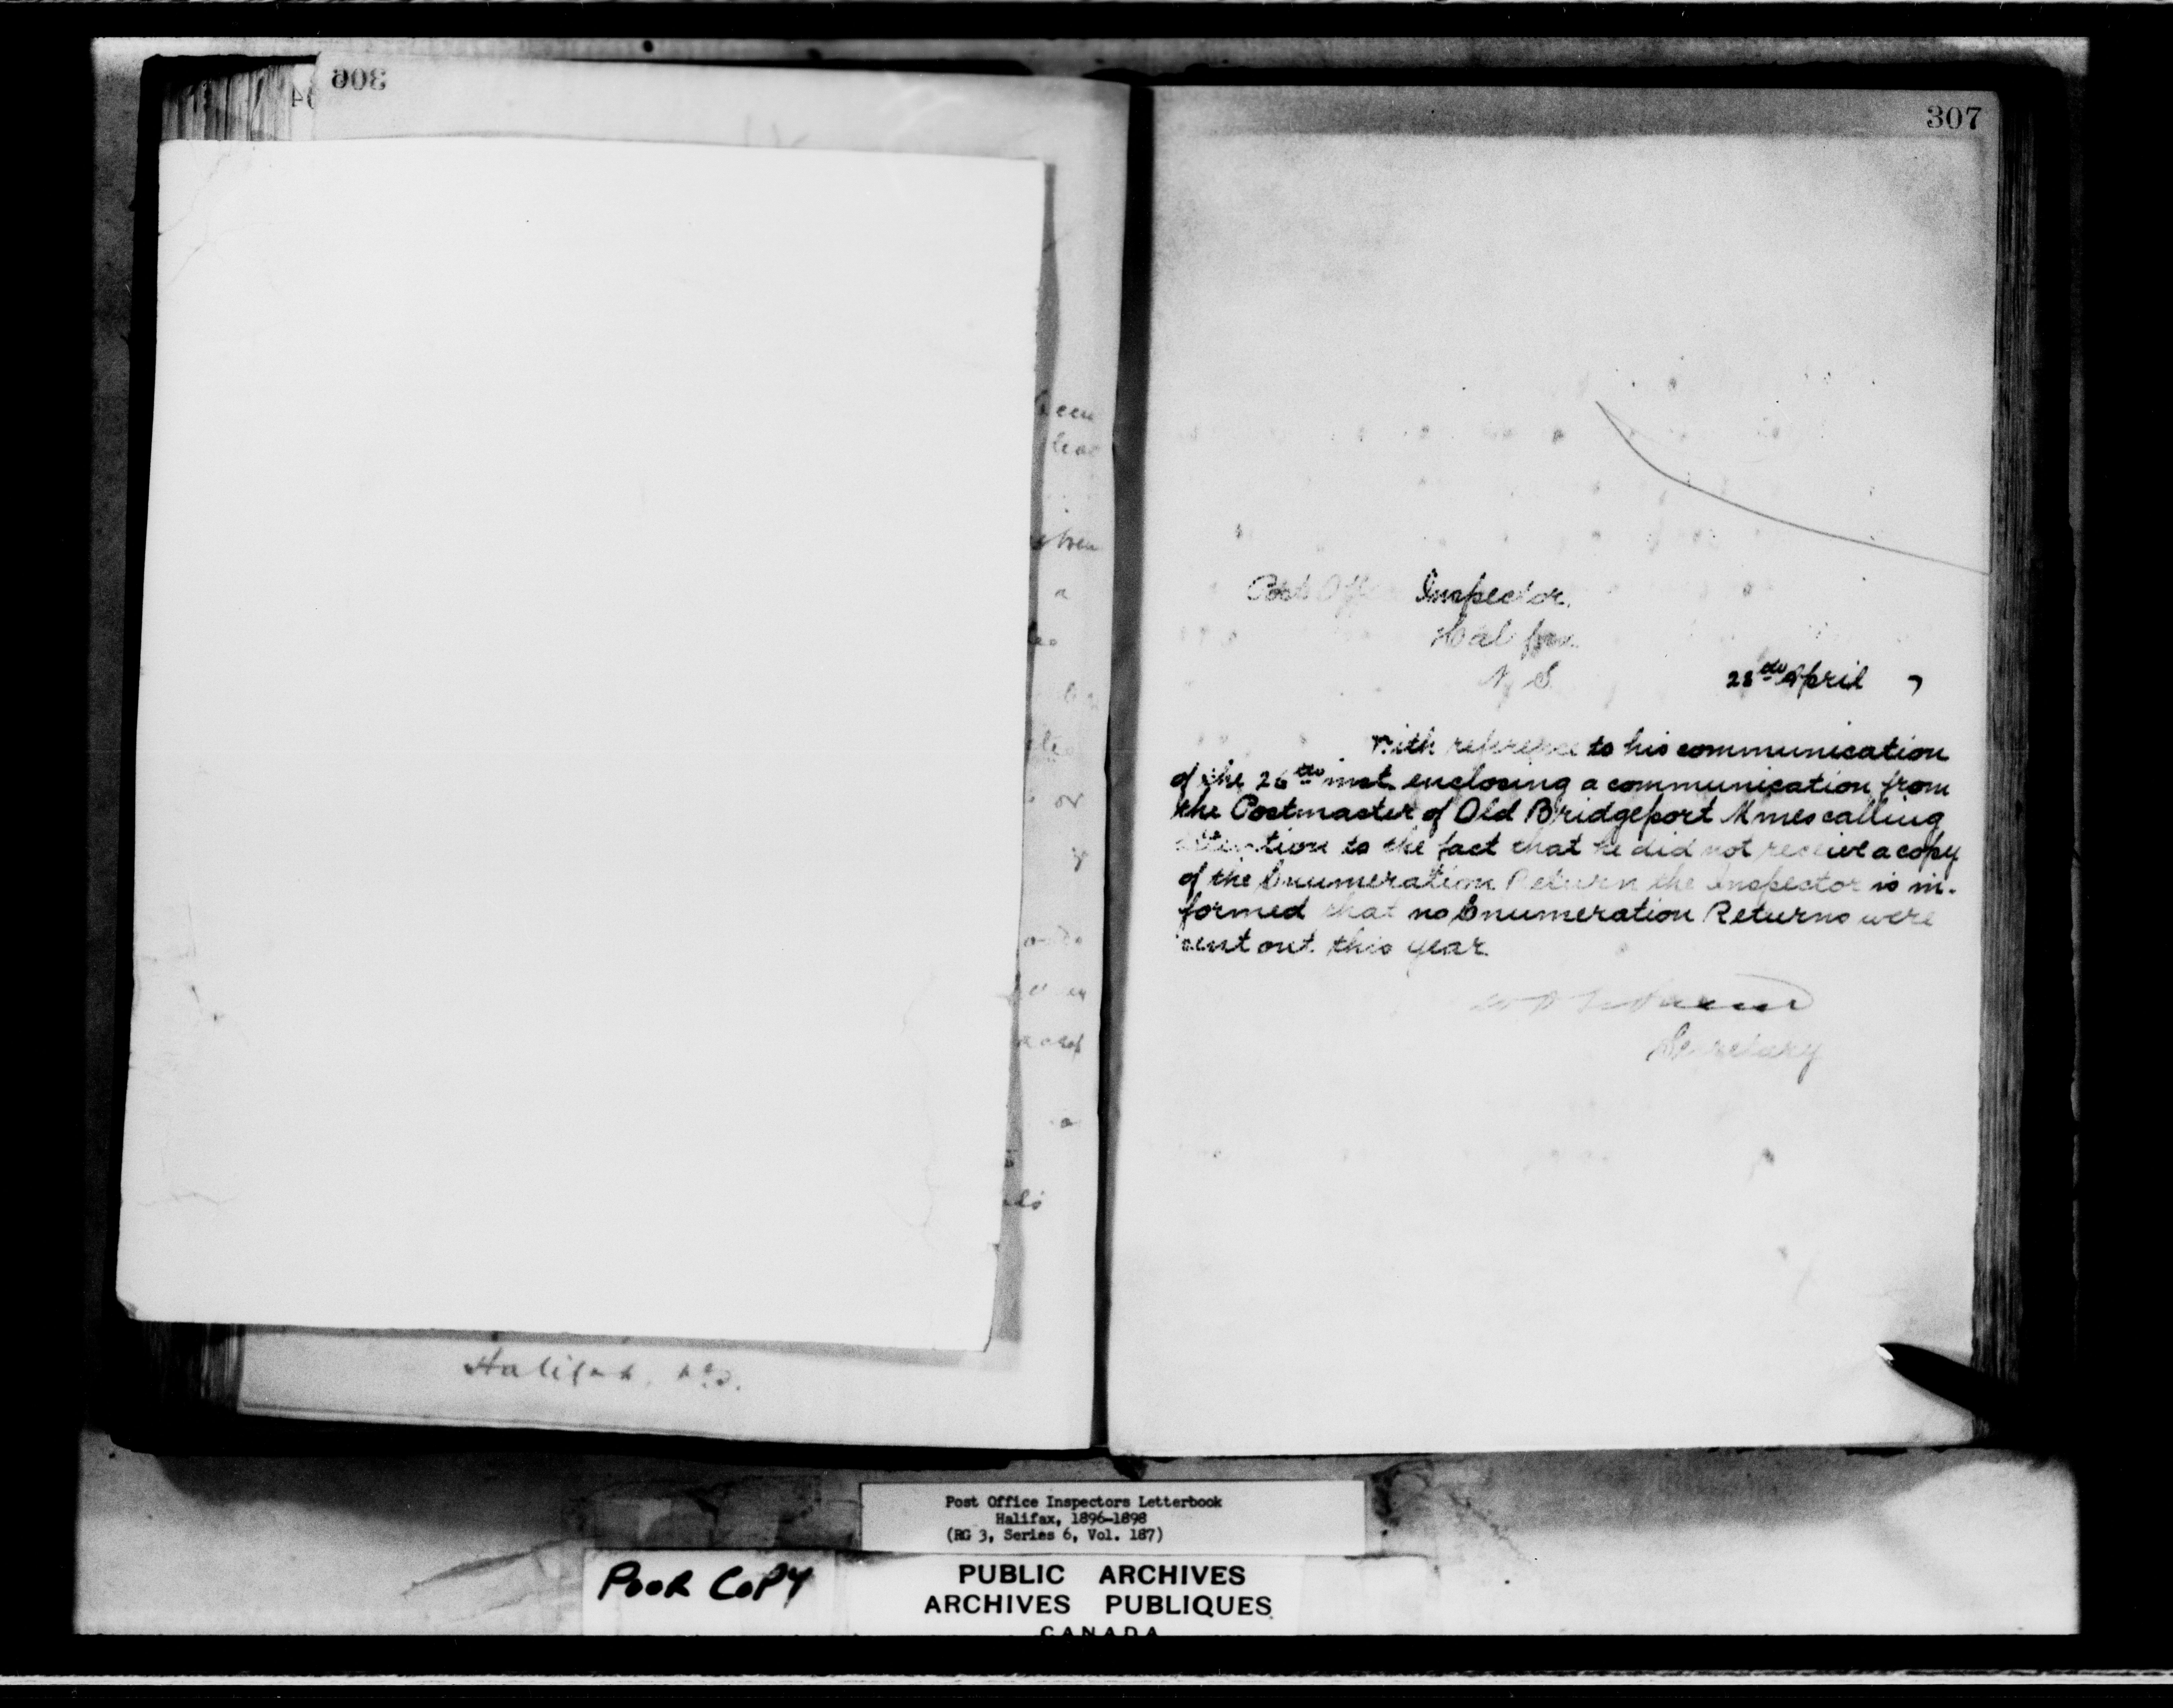 306
307
Post Off Inspector.
Halifax
N. S.
28th April 7
With reference to his communication
of the 26th inst. enclosing a communication from
the Postmaster of Old Bridgeport Mines calling
attention to the fact that he did not receive a copy
of the Enumeration Return the Inspector is in-
formed that no Enumeration Returns were
sent out this year
Secretary
een
a
or
Halifax, N.S.
Post Office Inspectors Letterbook
Halifax, 1896-1898
(RG 3, Series 6, Vol. 187)
POOR COPY
PUBLIC ARCHIVES
ARCHIVES PUBLIQUES
CANADA